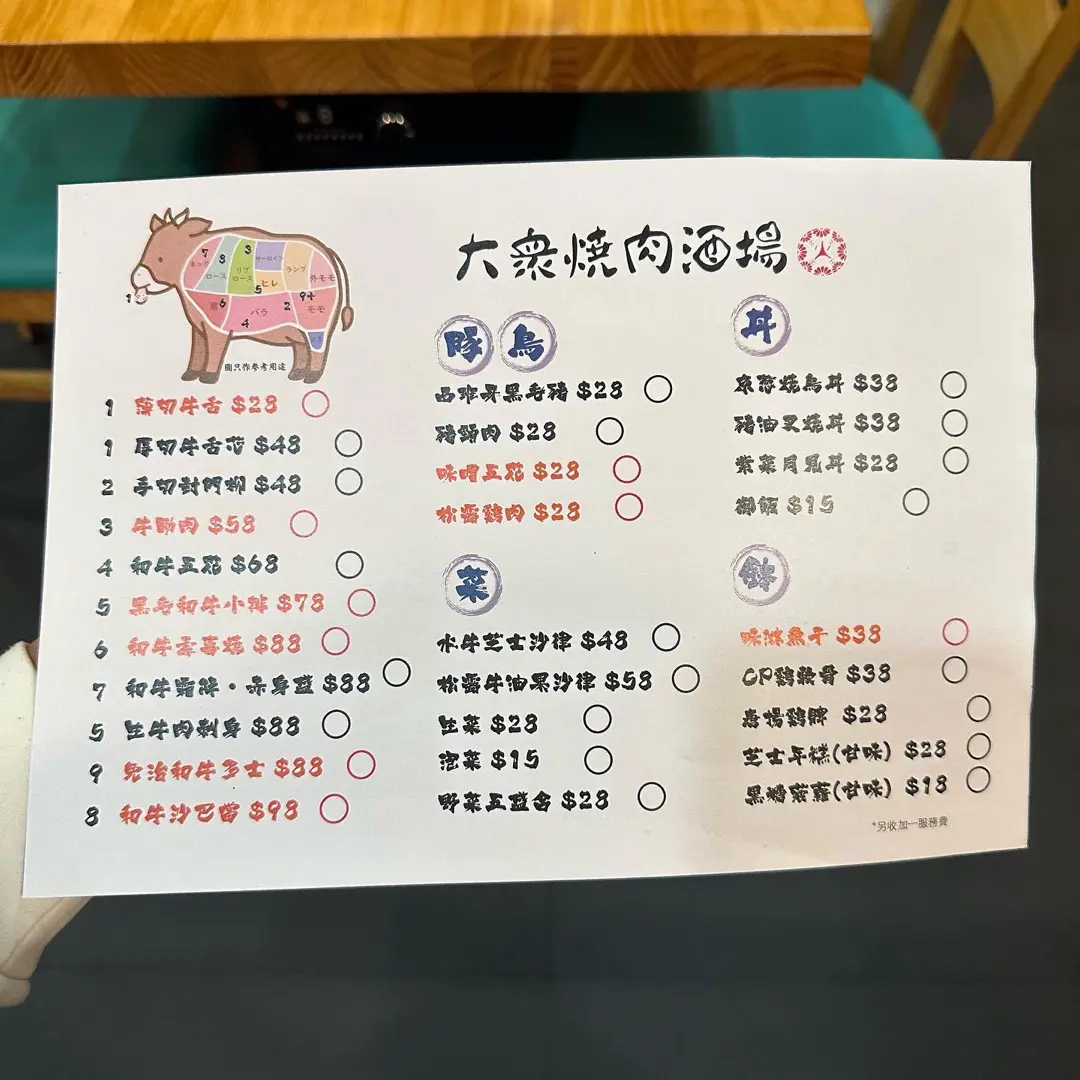 大衆燒肉酒場
7 8 3
ネック ロース リブロース サーロイン ヒレ ランプ 外モモ
1 肩 6 バラ 4 5 2 9+ モモ
圖只作參考用途
1 薄切牛舌 $28
1 厚切牛舌芯 $48
2 手切封門柳 $48
3 牛肋肉 $58
4 和牛五花 $68
5 黑毛和牛小排 $78
6 和牛壽喜燒 $88
7 和牛霜降・赤身盛 $88
5 生牛肉刺身 $88
9 免治和牛多士 $88
8 和牛沙巴翁 $98
豚 鳥
西班牙黑毛豬 $28
豬頸肉 $28
味噌五花 $28
松露鷄肉 $28
菜
水牛芝士沙律 $48
松露牛油果沙律 $58
生菜 $28
泡菜 $15
野菜五盛合 $28
丼
燒鳥丼 $38
豬油叉燒丼 $38
紫菜月見丼 $28
御飯 $15
味淋魚干 $38
CP鷄軟骨 $38
唐揚鷄髀 $28
芝士年糕(甘味) $28
黑糖菠蘿(甘味) $18
*另收加一服務費